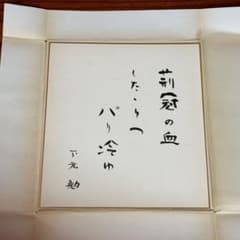 荊冠の血
したゝりつ
パリ冷ゆ
下元勉